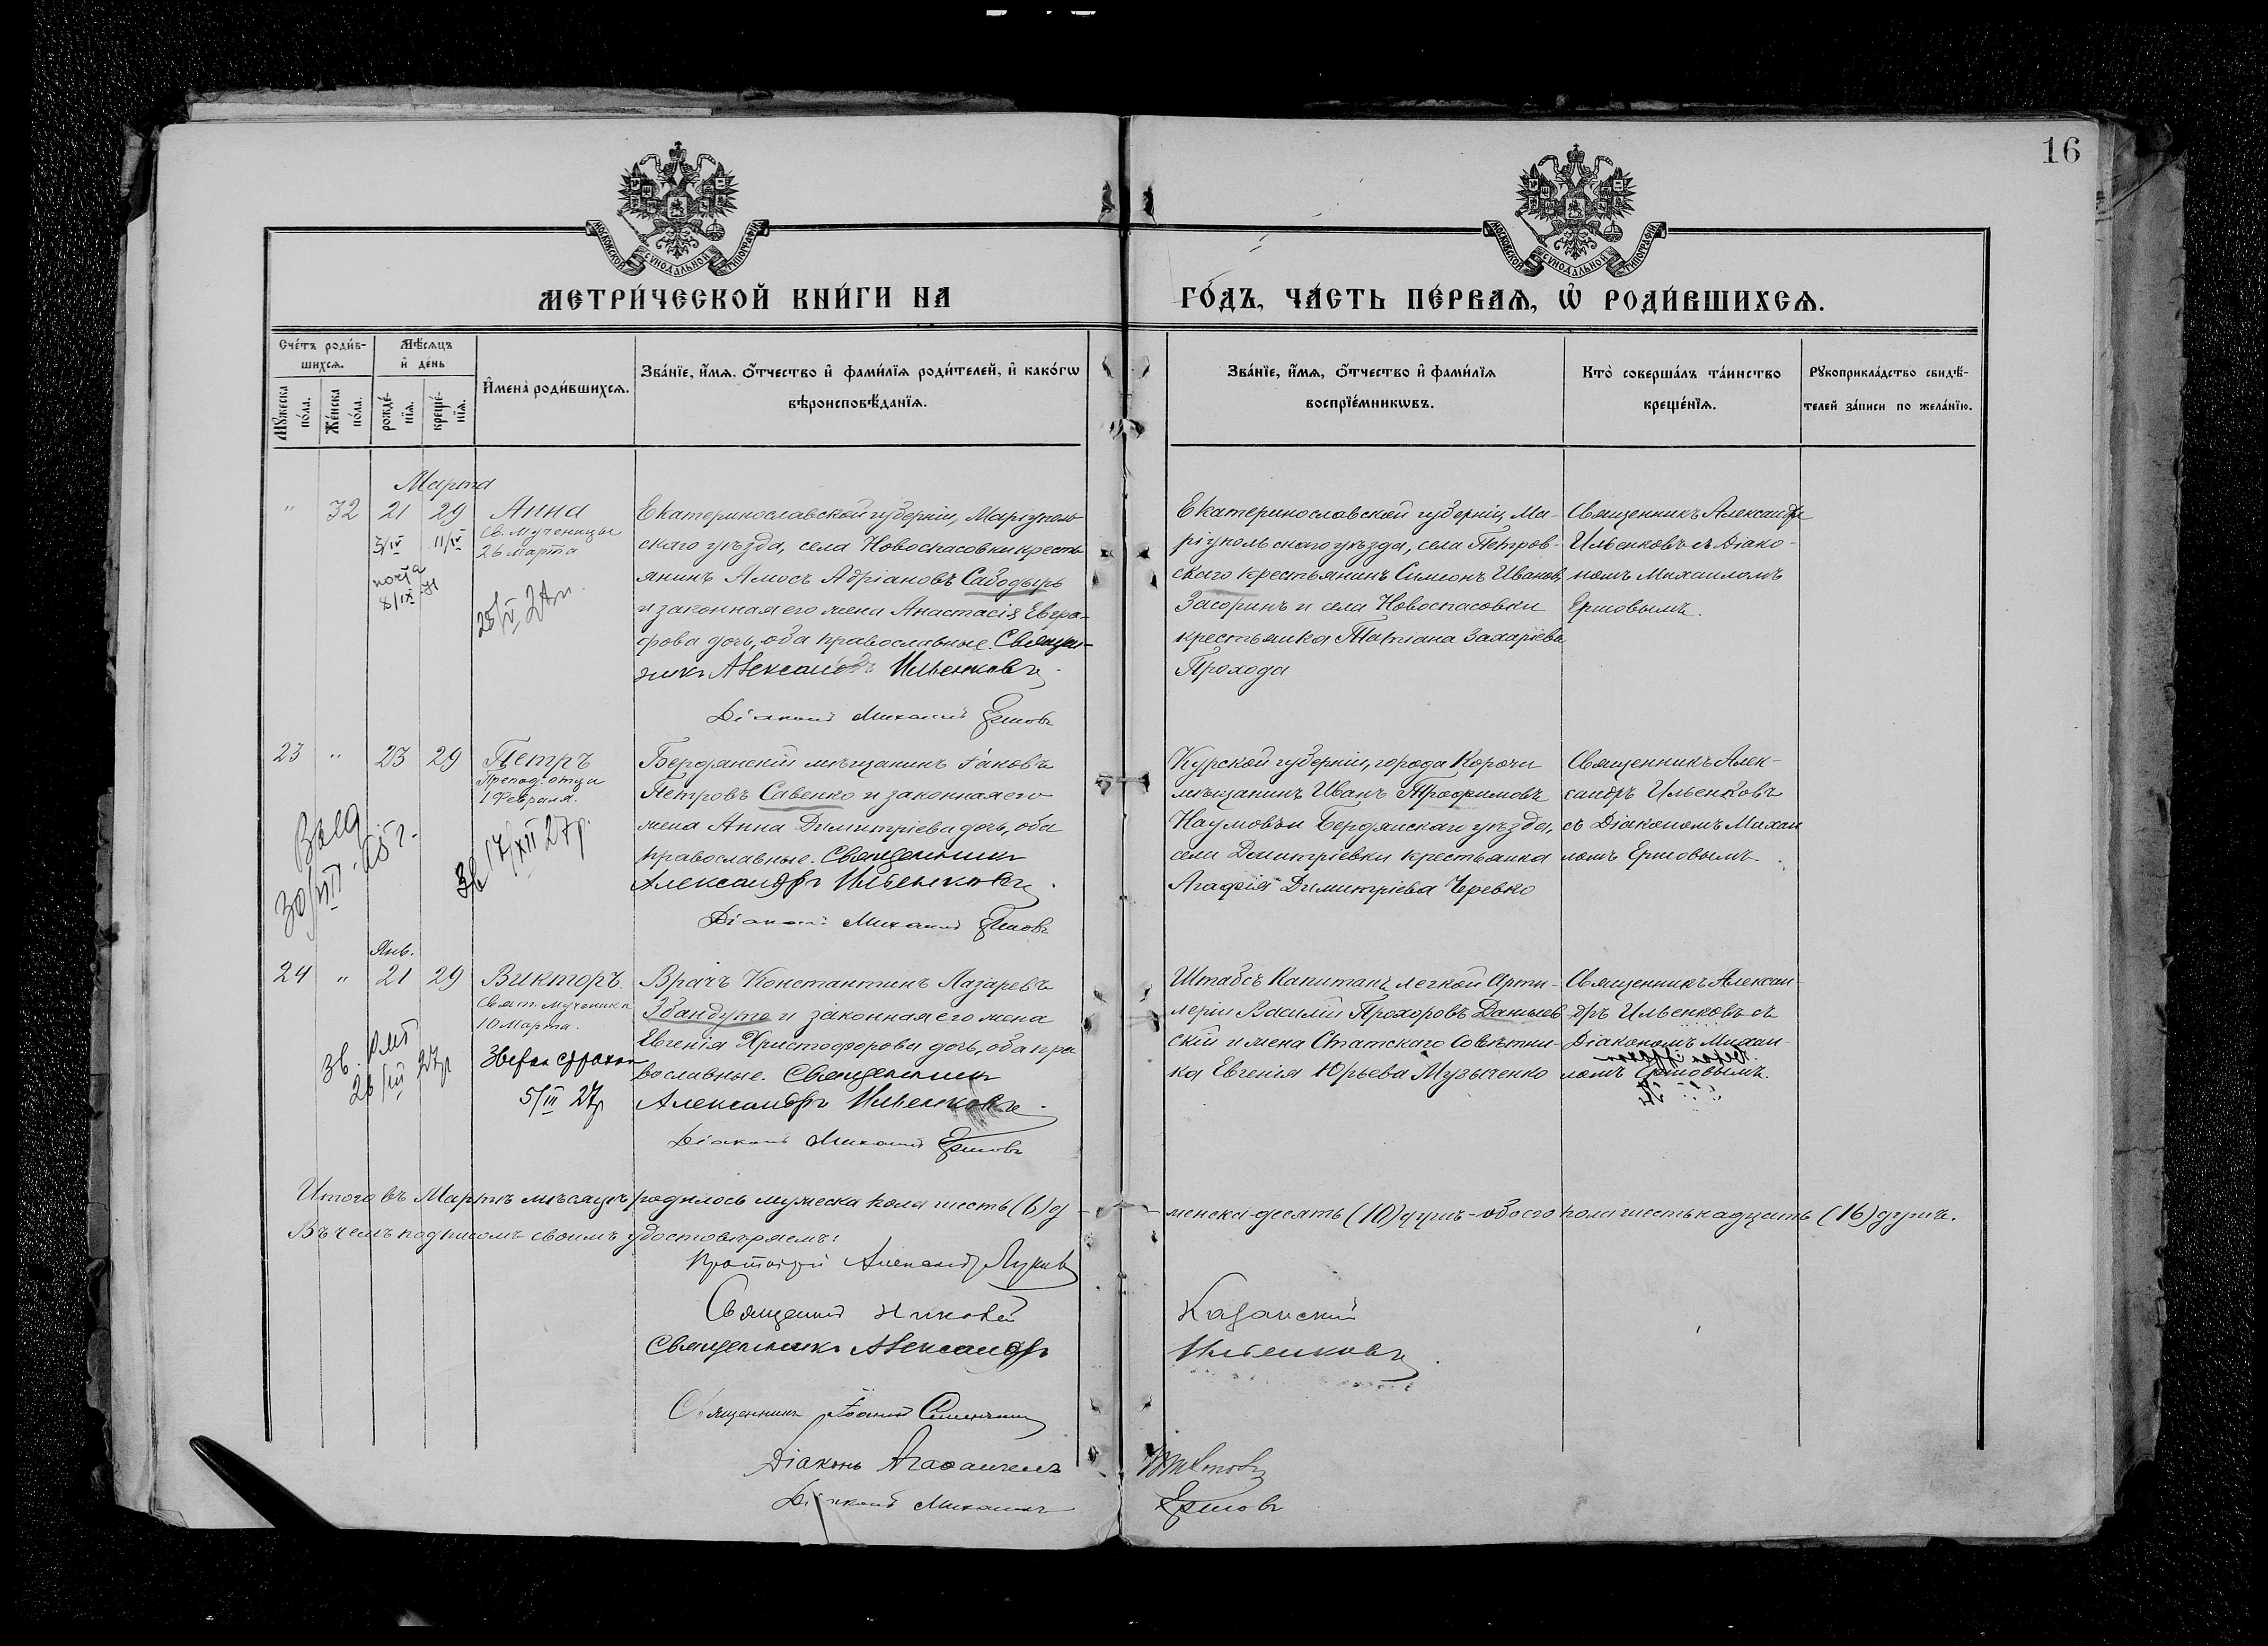 16
МОСКОВСКОЙ СѴНОДАЛЬНОЙ ТИПОГРАФІИ
МОСКОВСКОЙ СѴНОДАЛЬНОЙ ТИПОГРАФІИ
МЕТРИ́ЧЕСКОЙ КНИ́ГИ НА
ГО́ДЪ, ЧА́СТЬ ПЕ́РВАѦ, Ѽ РОДИ́ВШИХСѦ.
Сче́тъ роди́в-
шихсѧ.
Мꙋжеска по́ла.
Же́нска по́ла.
Мѣ́сѧцъ
и҆ де́нь
рожде́-
нїѧ.
креще́-
нїѧ.
И҆мена̀ роди́вшихсѧ.
Зва́нїе, и҆́мѧ, ѻ҆́тчество и҆ фами́лїѧ роди́телей, и҆ како́гѡ
вѣроисповѣ́данїѧ.
Зва́нїе, и҆́мѧ, ѻ҆́тчество и҆ фами́лїѧ
воспрїе́мникѡвъ.
Кто̀ соверша́лъ та́инство
креще́нїѧ.
Рꙋкоприкла́дство свидѣ́-
телей за́писи по жела́нїю.
Марта
" 32 21 29 Анна
Св. Мученицы
26 марта
3/IV 11/IV
почта
8/IX
25/IV
Екатеринославской губерніи, Маріуполь
скаго уѣзда, села Новоспасовки кресть
янинъ Амосъ Адріановъ Сабодырь
и законная его жена Анастасія Евгра-
фова дочь, оба православные. Священ-
никъ Александръ Ильенковъ
Діаконъ Михаилъ Ершовъ
Екатеринославской губерніи, Ма-
ріупольскаго уѣзда, села Петров-
скаго крестьянинъ Симеонъ Ивановъ
Засоринъ и села Новоспасовки
крестьянка Татіана Захаріева
Прохода
Священникъ Александръ
Ильенковъ съ Діако-
номъ Михаиломъ
Ершовымъ.
23 " 23 29 Петръ
Препод. отца
1 Февраля.
30/III 25 г.
Зв 17/XII 27 р.
Бердянскій мѣщанинъ Іаковъ
Петровъ Савенко и законная его
жена Анна Димитріева дочь, оба
православные. Священникъ
Александръ Ильенковъ
Діаконъ Михаилъ Ершовъ
Курской губерніи, города Корочи
мѣщанинъ Иванъ Трофимовъ
Наумовъ и Бердянскаго уѣзда,
села Димитріевки крестьянка
Агафія Димитріева Черевко
Священникъ Алек-
сандръ Ильенковъ
съ Діакономъ Михаи
ломъ Ершовымъ.
Янв.
24 " 21 29 Викторъ.
Свят. мученика
10 Марта.
Зв.
26/III 27 р
5/III 27 р
Врачъ Константинъ Лазаревъ
Збандуто и законная его жена
Евгенія Христофорова дочь, оба пра
вославные. Священникъ
Александръ Ильенковъ
Діаконъ Михаилъ Ершовъ
Штабсъ Капитанъ легкой Арти-
леріи Василій Прохоровъ Данилев
скій и жена Статскаго Совѣтни-
ка Евгенія Юрьева Музыченко
Священникъ Алексан-
дръ Ильенковъ съ
Діакономъ Михаи-
ломъ Ершовымъ.
Итого въ Мартѣ мѣсяцѣ родилось мужеска пола шесть (6) д - женска-десять (10) душъ - обоего пола шестьнадцать (16) душъ.
Въ чемъ подписомъ своимъ удостовѣряемъ:
Протоіерей Александръ
Священникъ Николай Казанскій
Священникъ Александръ Ильенковъ
Священникъ Іоаннъ
Діаконъ Агаѳангелъ
Діаконъ Михаилъ Ершовъ